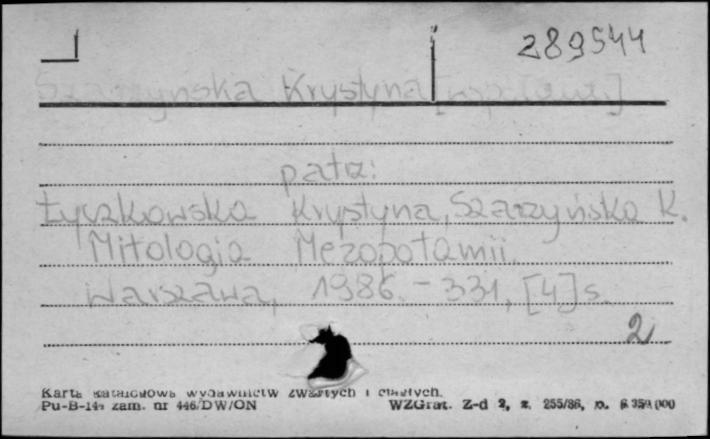 289544
Szarzyńska Krystyna [współaut.]
patrz:
Łyczkowska Krystyna, Szarzyńska K.
Mitologia Mezopotamii.
Warszawa, 1986. - 331, [4] s.
2
Karta katalogowa wydawnictw zwartych i ciągłych.
Pu-B-144 zam. nr 446/DW/ON
WZGraf. Z-d 2, z. 255/86, n. 6 350 000